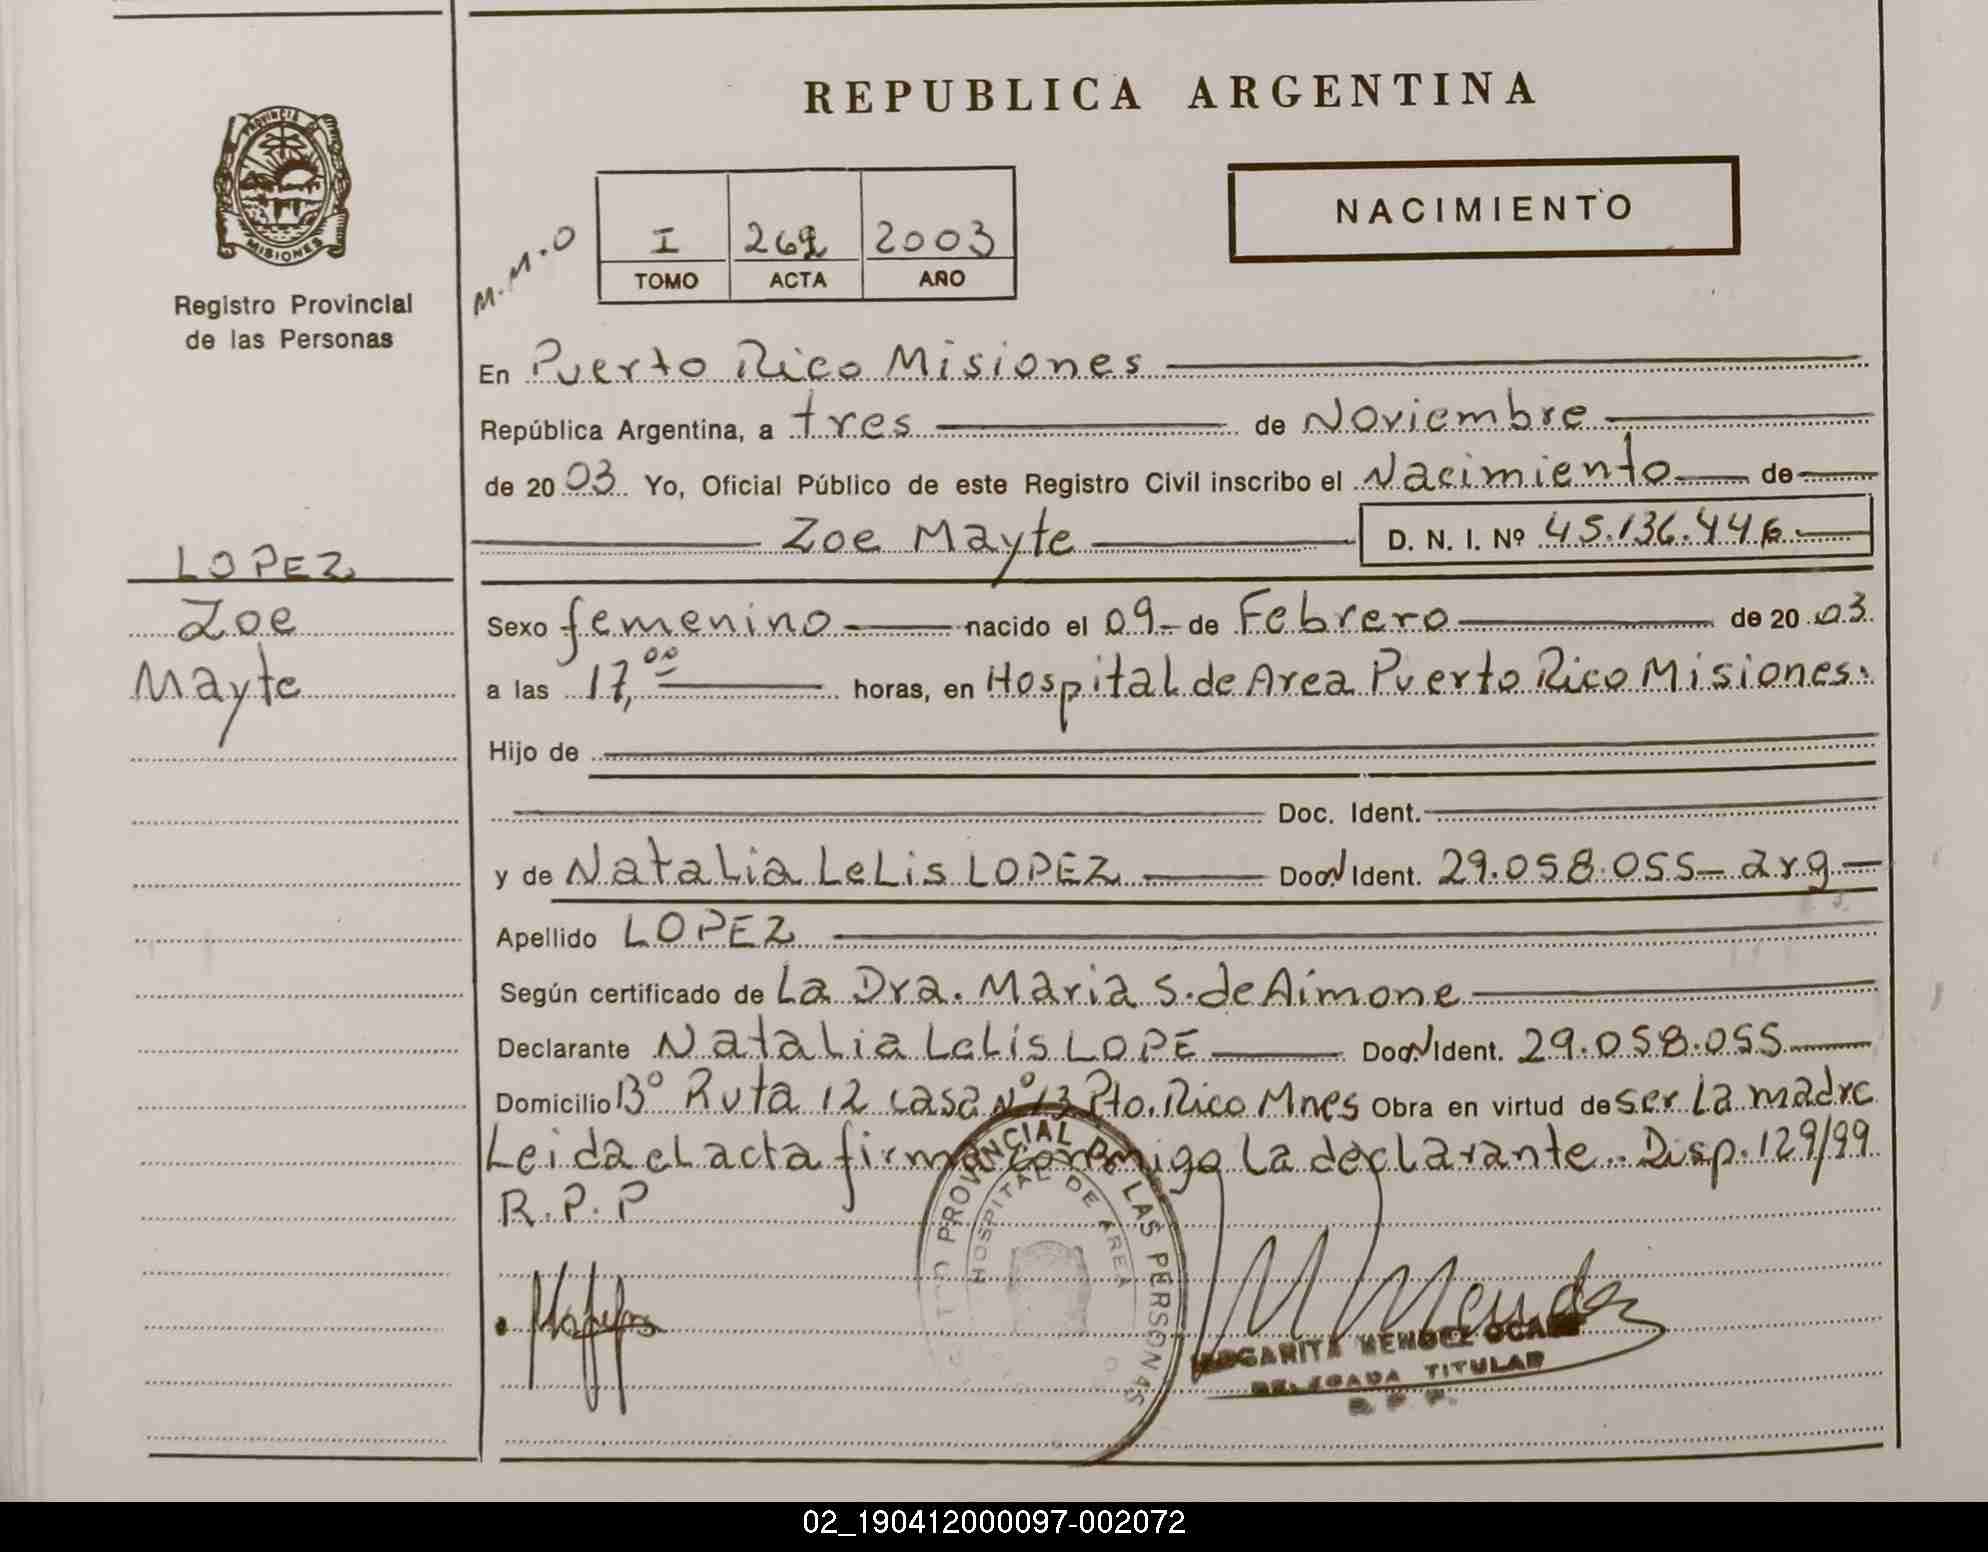 REPUBLICA ARGENTINA
PROVINCIA DE
MISIONES
Registro Provincial
de las Personas
NACIMIENTO
M.M.O
I 262 2003
TOMO ACTA AÑO
En Puerto Rico Misiones
República Argentina, a tres de Noviembre
de 2003 Yo, Oficial Público de este Registro Civil inscribo el Nacimiento de
Zoe Mayte D. N. I. Nº 45.136.446
LOPEZ
Zoe
Mayte
Sexo femenino nacido el 09 de Febrero de 2003
a las 17,00 horas, en Hospital de Area Puerto Rico Misiones.
Hijo de
Doc. Ident.
y de Natalia Lelis LOPEZ Doc. Ident. 29.058.055 arg
Apellido LOPEZ
Según certificado de La Dra. Maria S. de Aimone
Declarante Natalia Lelis LOPE Doc. Ident. 29.058.055
Domicilio Bº Ruta 12 casa Nº 13 Pto. Rico Mnes Obra en virtud de ser la madre
Leida el acta firma conmigo la declarante. Disp. 129/99
R.P.P
PROVINCIAL DE LAS PERSONAS
HOSPITAL DE AREA
M Mendez
MARGARITA MENDEZ
DELEGADA TITULAR
R. P. P.
02_190412000097-002072